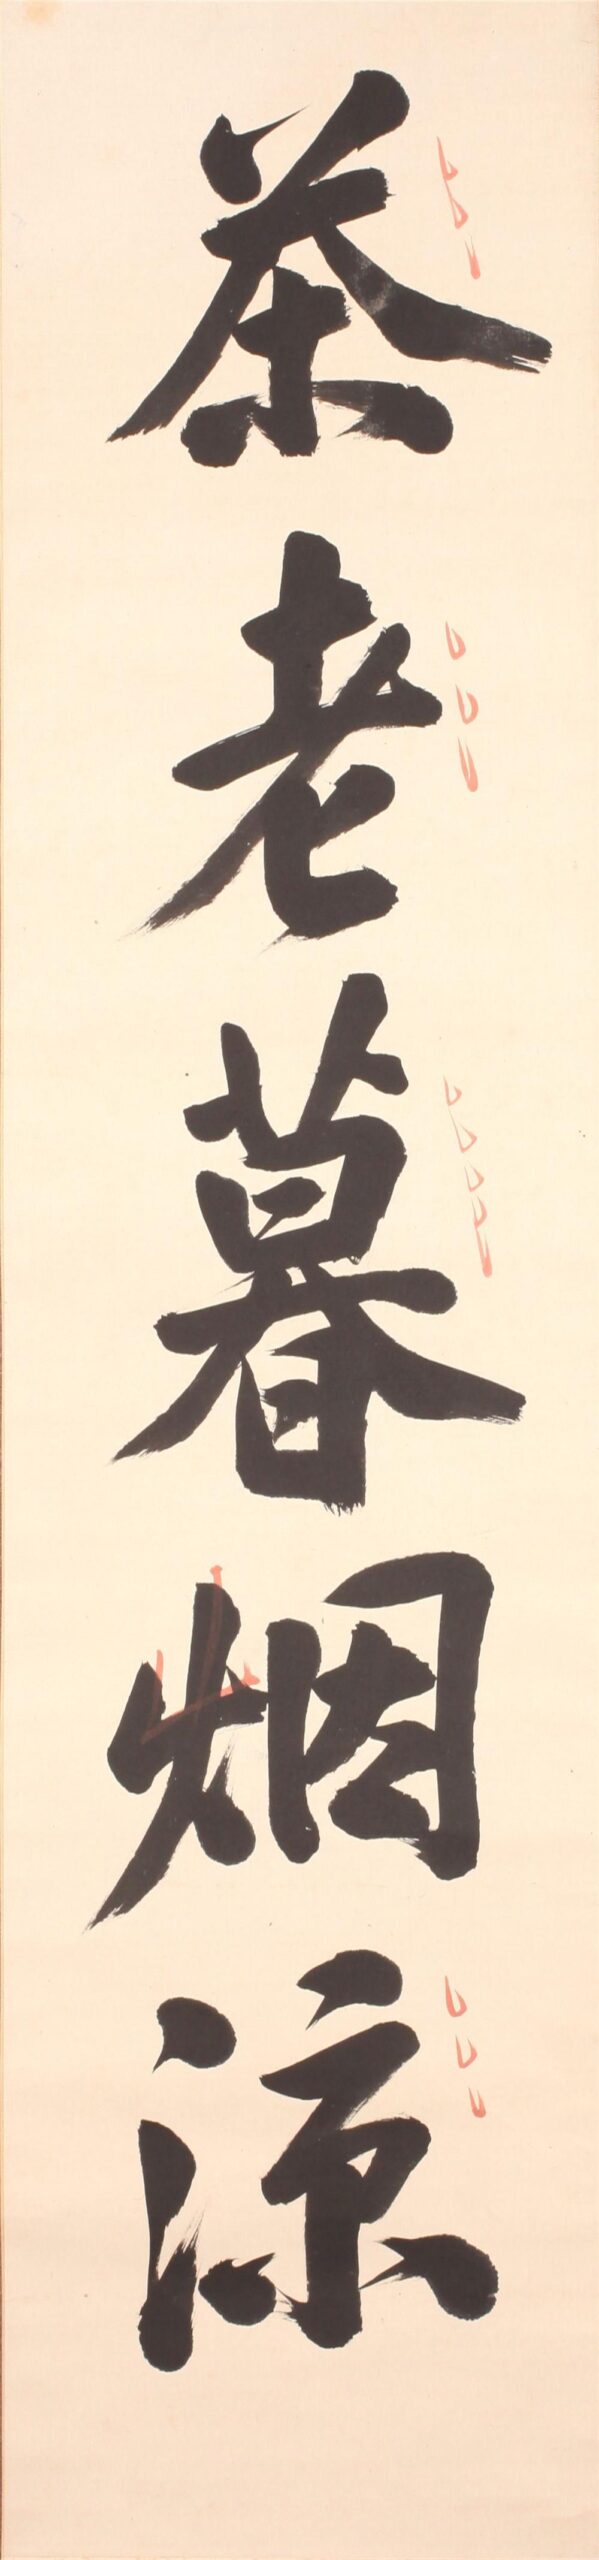 茶老暮烟涼